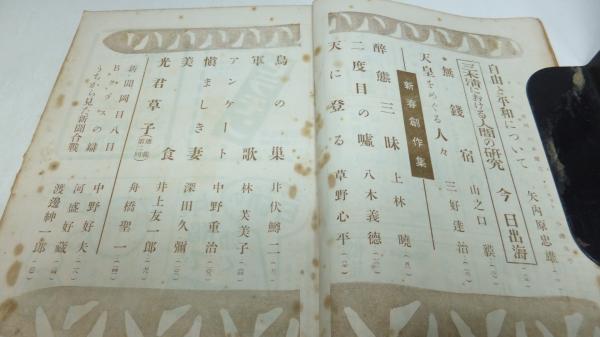 自由と平和について 矢内原忠雄
三木清における人間の研究 今日出海
無錢宿 山之口
天皇をめぐる人々 三好達治
新春創作集
醉態三昧 上林曉
二度目の嘘 八木義德
天に登る 草野心平
鳥の巢 井伏鱒二
軍歌 林芙美子
アンケート 中野重治
愼ましき妻 深田久彌
美食 井上友一郎
光君草子 舟橋聖一
新聞岡目八目
中野好夫
河盛好藏
うちから見た新聞合戰 渡邊紳一郎